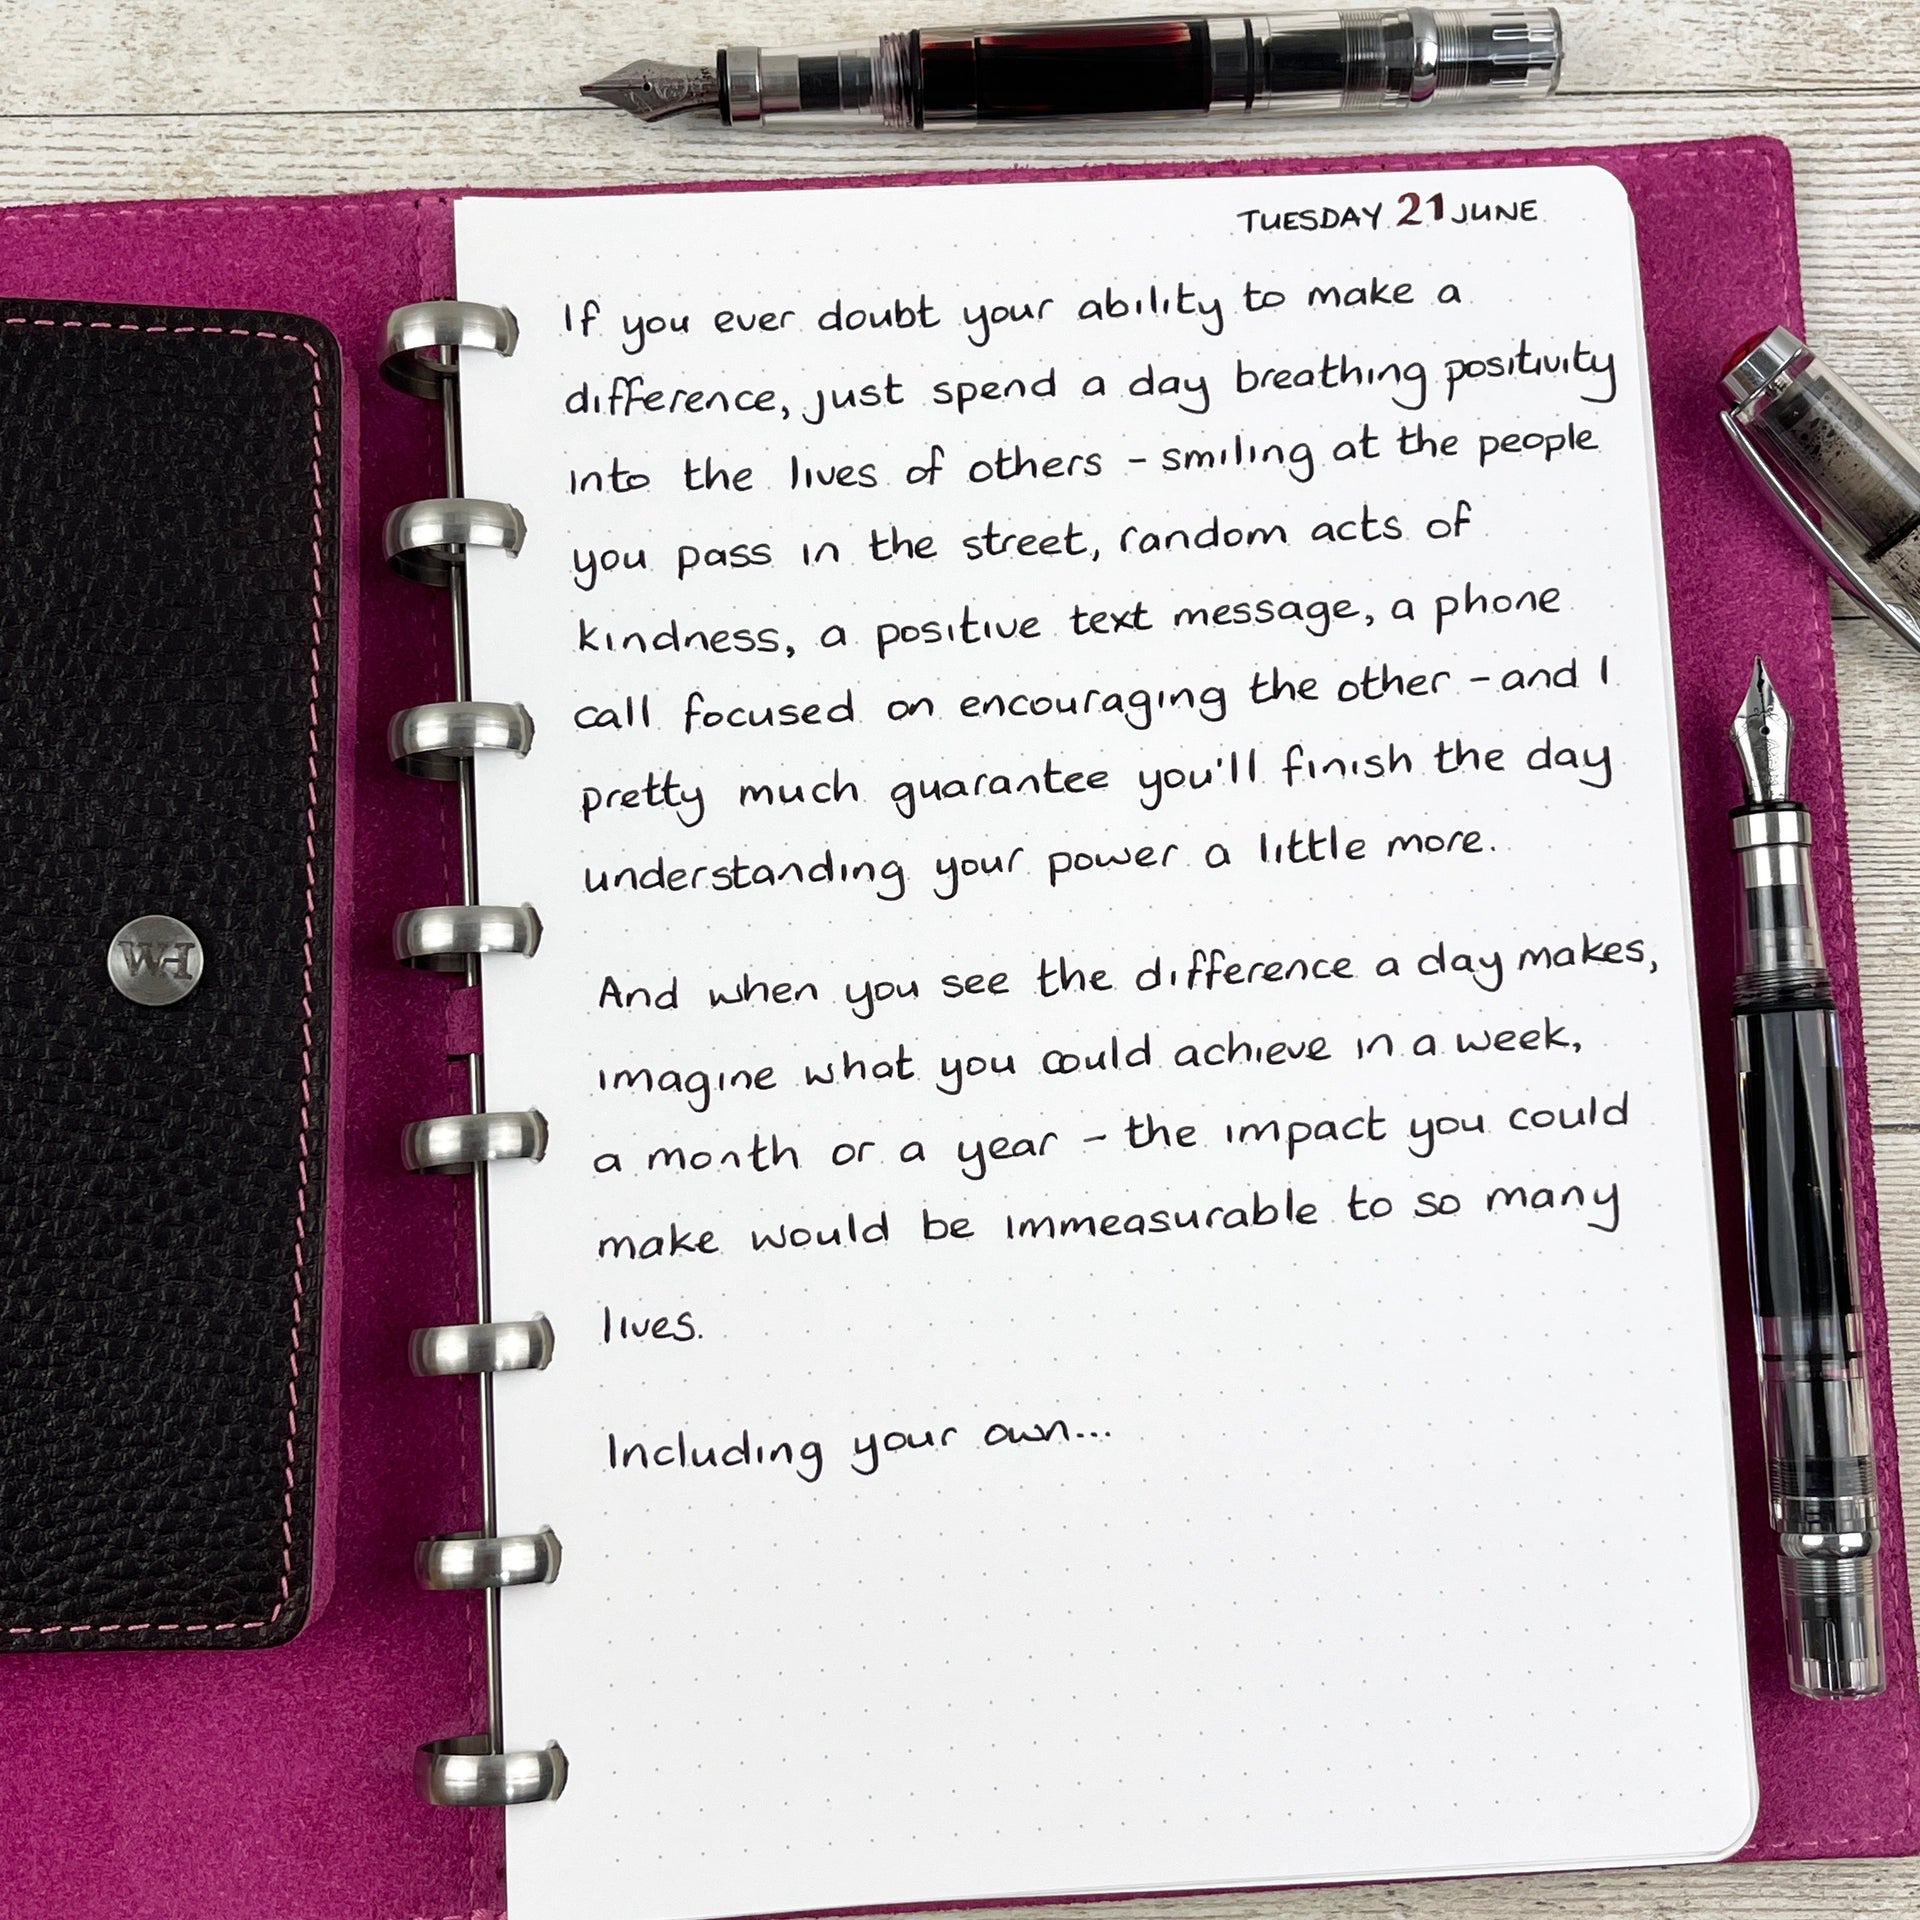 TUESDAY 21 JUNE
If you ever doubt your ability to make a
difference, just spend a day breathing positivity
into the lives of others - smiling at the people
you pass in the street, random acts of
kindness, a positive text message, a phone
call focused on encouraging the other - and I
pretty much guarantee you'll finish the day
understanding your power a little more.
And when you see the difference a day makes,
imagine what you could achieve in a week,
a month or a year - the impact you could
make would be immeasurable to so many
lives.
Including your own...
WH